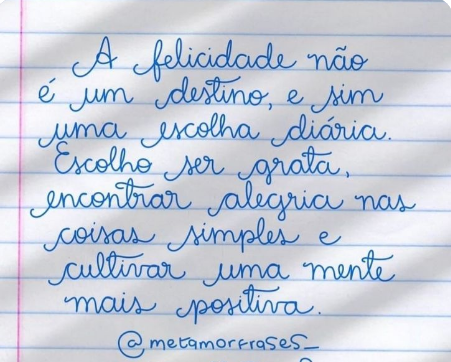 A felicidade não
é um destino, e sim
uma escolha diária.
Escolho ser grata,
encontrar alegria nas
coisas simples e
cultivar uma mente
mais positiva.
@metamorfrases_